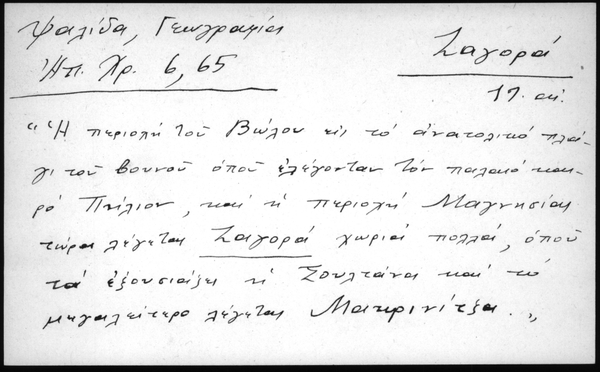 Ψαλίδα, Γεωγραφία
Ἠπ. Χρ. 6, 65
Ζαγορά
17. αἰ.
"Ἡ περιοχή τοῦ Βώλου εἰς τό ἀνατολικό πλά-
γι τοῦ βουνοῦ ὁποῦ ἐλέγονταν τόν παλαιό και-
ρό Πήλιον, καί ἡ περιοχή Μαγνησίας
τώρα λέγεται Ζαγορά χωριά πολλά, ὁποῦ
τά ἐξουσιάζει ἡ Σουλτάνα καί τό
μεγαλείτερο λέγεται Μακρινίτζα.„